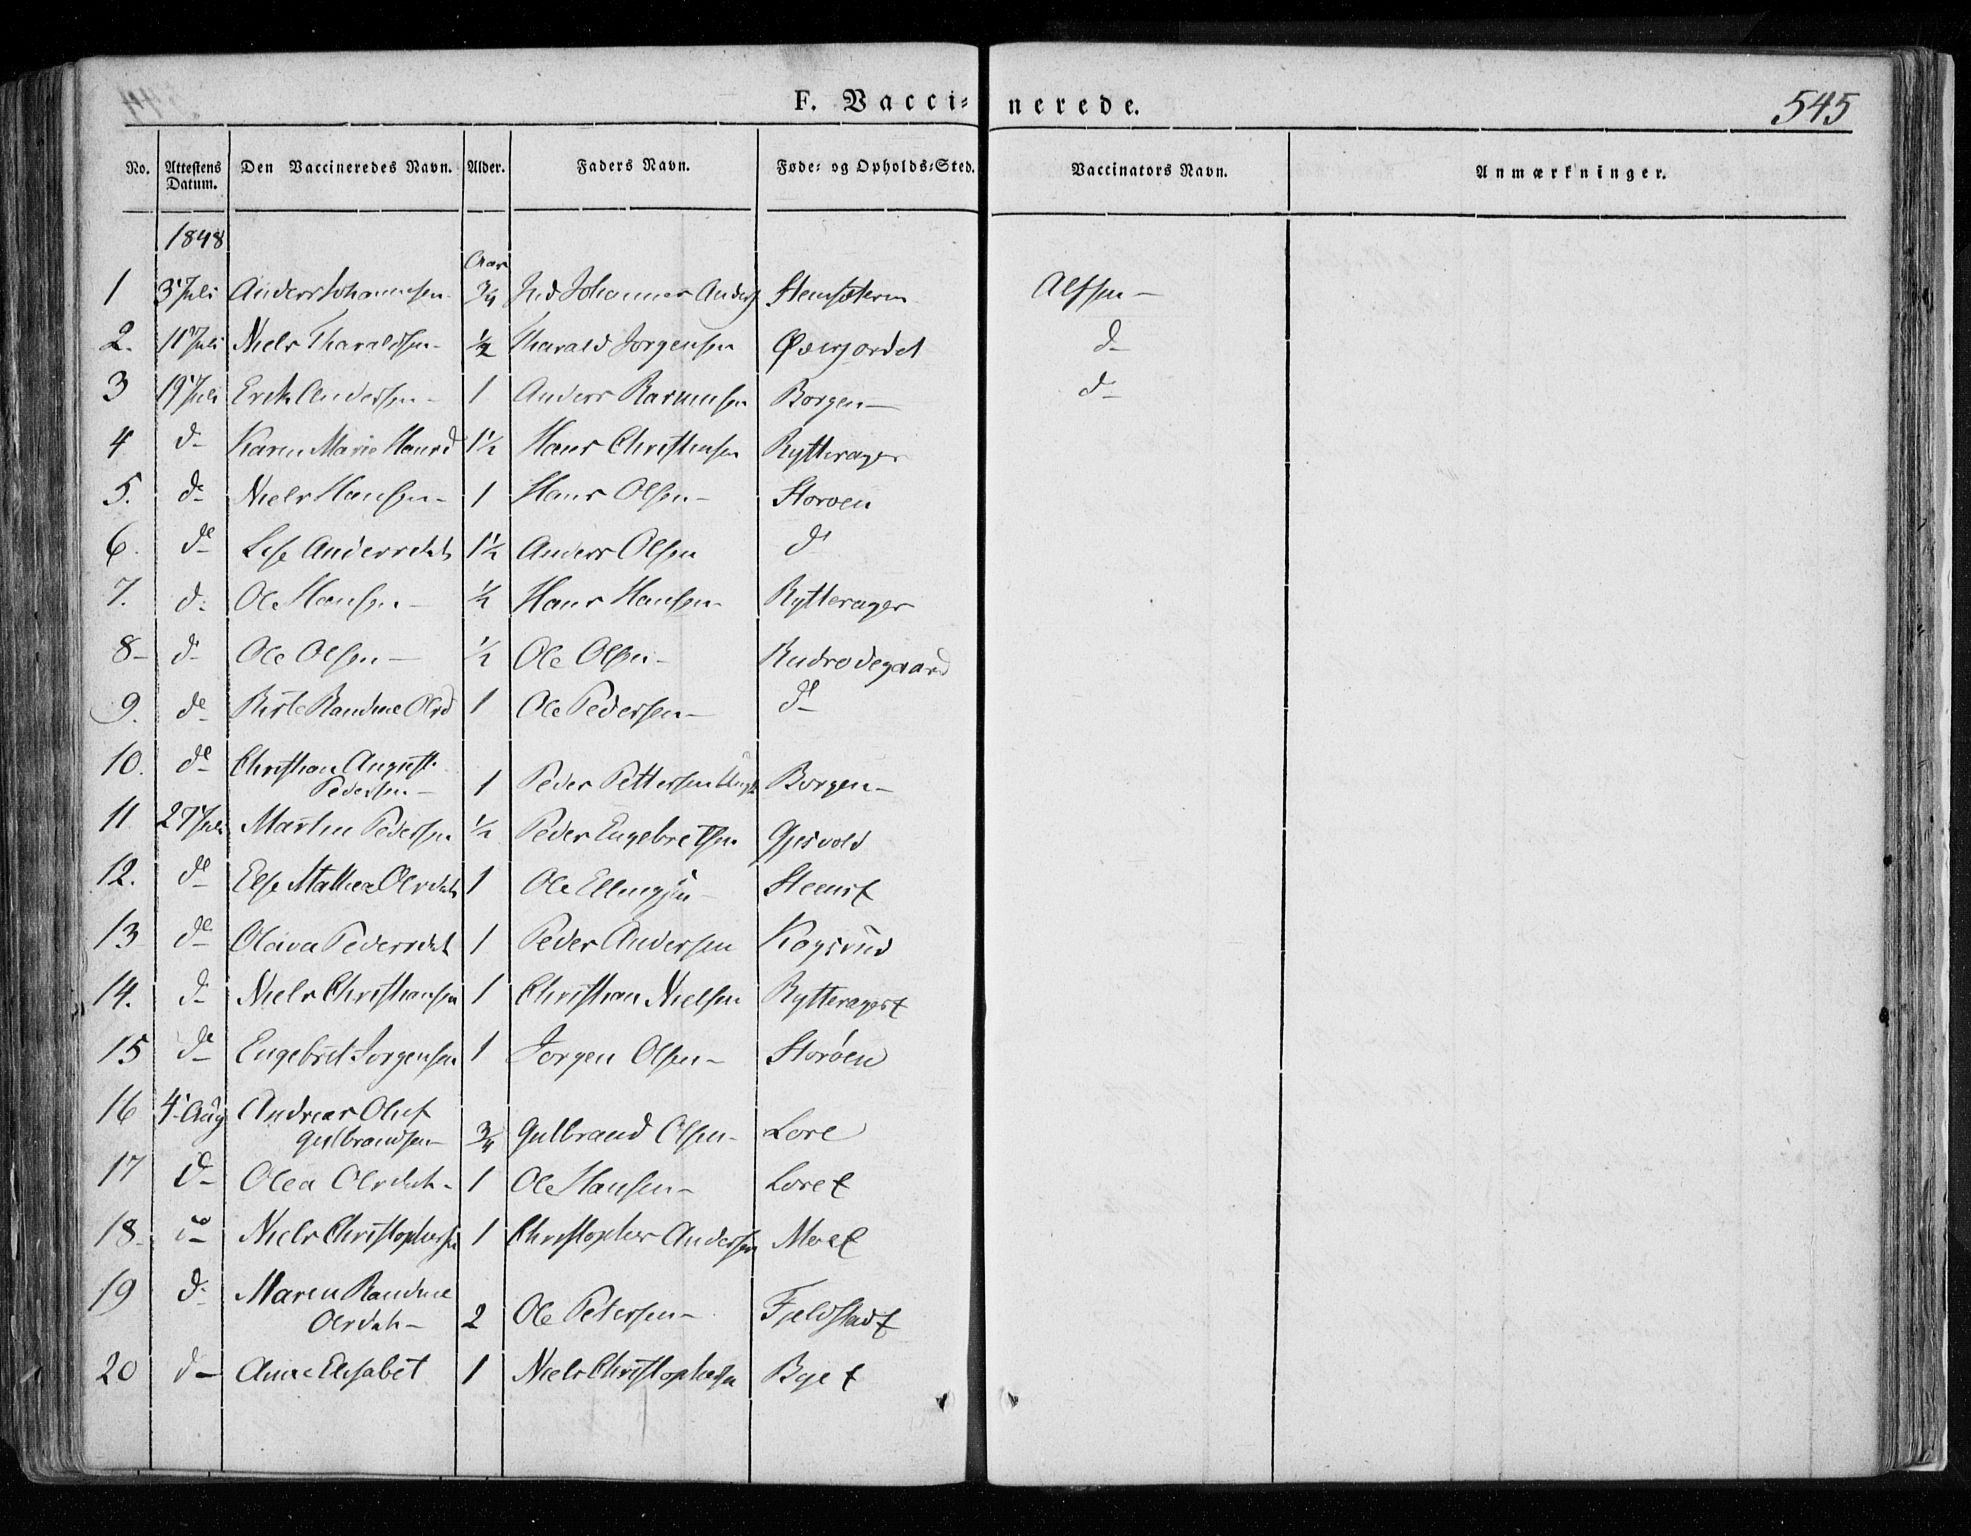 F. Vaccinerede. 545
No. Attestens Datum. Den Vaccineredes Navn. Alder. Faders Navn. Føde- og Opholds-Sted. Vaccinators Navn. Anmærkninger.
1848
Aar
1 3 Juli Anders Johannesen 3/4 Johannes Anders Alfsen
2. 11 Juli Niels Tharaldsen 1/2 Tharald Jørgensen Øverjordet d
3 19 Juli Erik Andersen 1 Anders Rasmusen Borgen d
4 d Karen Marie Hansd 1 1/2 Hans Christensen Rytterager
5. d Niels Hansen 1 Hans Olsen Storøen
6. d Lise Andersdatr 1 1/2 Anders Olsen d
7. d Ole Hansen 1/2 Hans Hansen Rytterager
8 d Ole Olsen 1/2 Ole Olsen
9. d Randine Olsd 1 Ole Pedersen d
10. d Christian August
Pedersen 1 Peder Pettersen Borgen
11 27 Juli Martin Pedersen 1/2 Peder Engebretsen Gjesvold
12. d Else Mathea Olsdatr 1 Ole Ellingsen
13 d Olava Pedersdatr 1 Peder Andersen Kogsrud
14. d Niels Christiansen 1 Christian Nielsen
15 d Engebret Jørgensen 1 Jørgen Olsen Storøen
16 4 Aug Andreas Oluf
Gulbrandsen 3/4 Gulbrand Olsen Lore
17 d Olea Olsdatr 1 Ole Hansen
18 d Niels Christophersen 1 Christopher Andersen
19 d Maren Randine
Olsdatr 2 Ole Petersen
20 d Anne Elisabet 1 Niels Christophersen